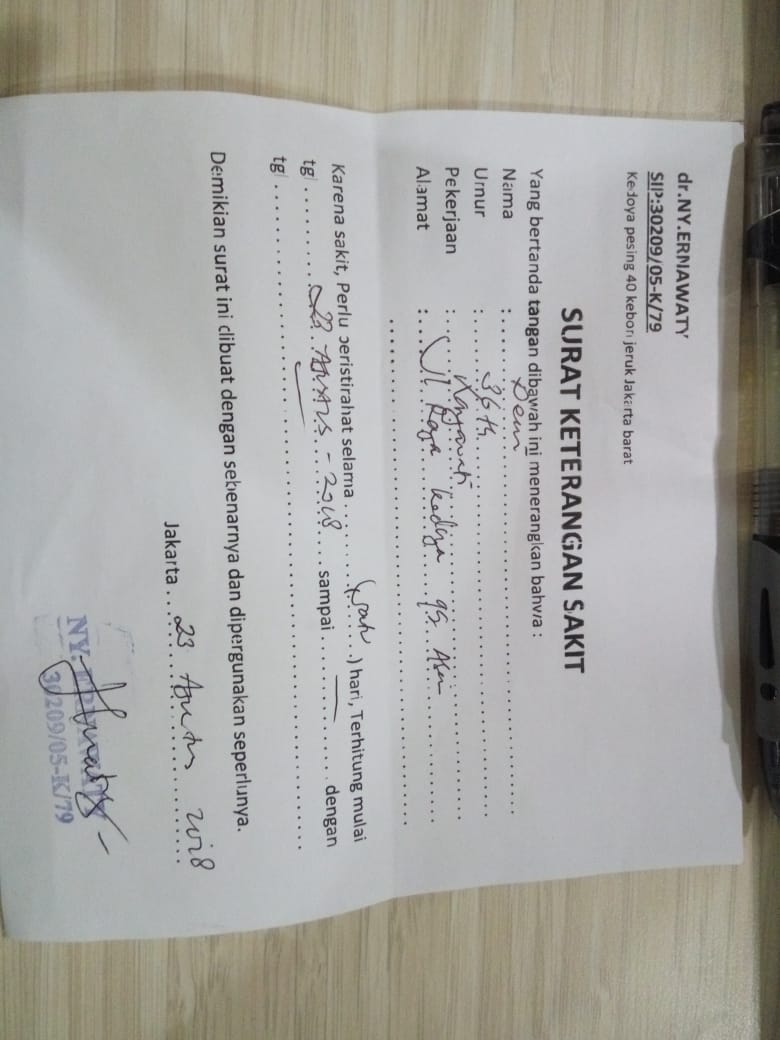 dr.NY.ERNAWATY
SIP:30209/05-K/79
Kedoya pesing 40 kebon jeruk Jakarta barat
SURAT KETERANGAN SAKIT
Yang bertanda tangan dibawah ini menerangkan bahwa :
Nama :
Umur : 36 th
Pekerjaan : Karyawati
Alamat : Jl. Raya Kedoya 99
Karena sakit, Perlu beristirahat selama (satu) hari, Terhitung mulai
tgl 23 Agustus - 2018 sampai — dengan
tgl
Demikian surat ini dibuat dengan sebenarnya dan dipergunakan seperlunya.
Jakarta 23 Agustus 2018
NY. ERNAWATY
30209/05-K/79